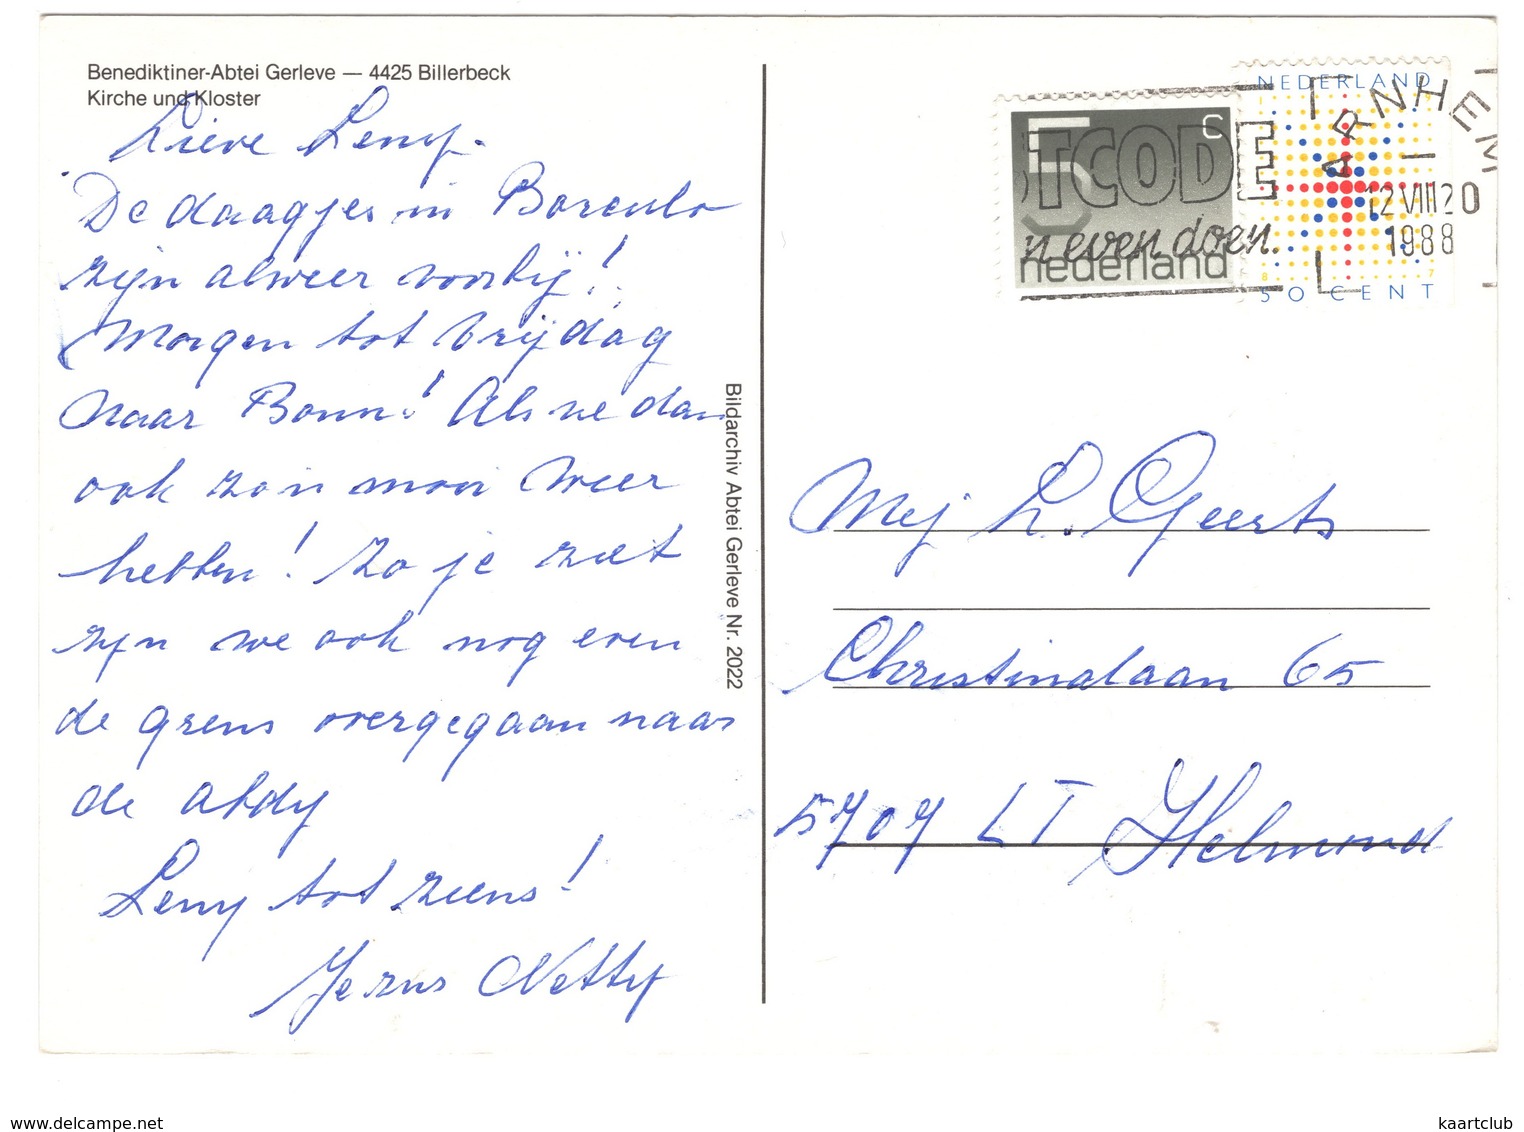 Benediktiner-Abtei Gerleve — 4425 Billerbeck
Kirche und Kloster
Lieve Leny.
De daagjes in Borculo
zijn alweer voorbij!
Morgen tot Vrijdag
naar Bonn! Als we dan
ook zo'n mooi weer
hebben! Zo je ziet
zijn we ook nog even
de grens overgegaan naar
de abdy
Leny tot ziens!
Je zus Netty
Bildarchiv Abtei Gerleve Nr. 2022
5 c
nederland
NEDERLAND
50 CENT
8 7
TCODE
n even doen.
ARNHEM
12 VIII 20
1988
Mej L. Geerts
Christinalaan 65
5707 LT Helmond
www.delcampe.net
kaartclub